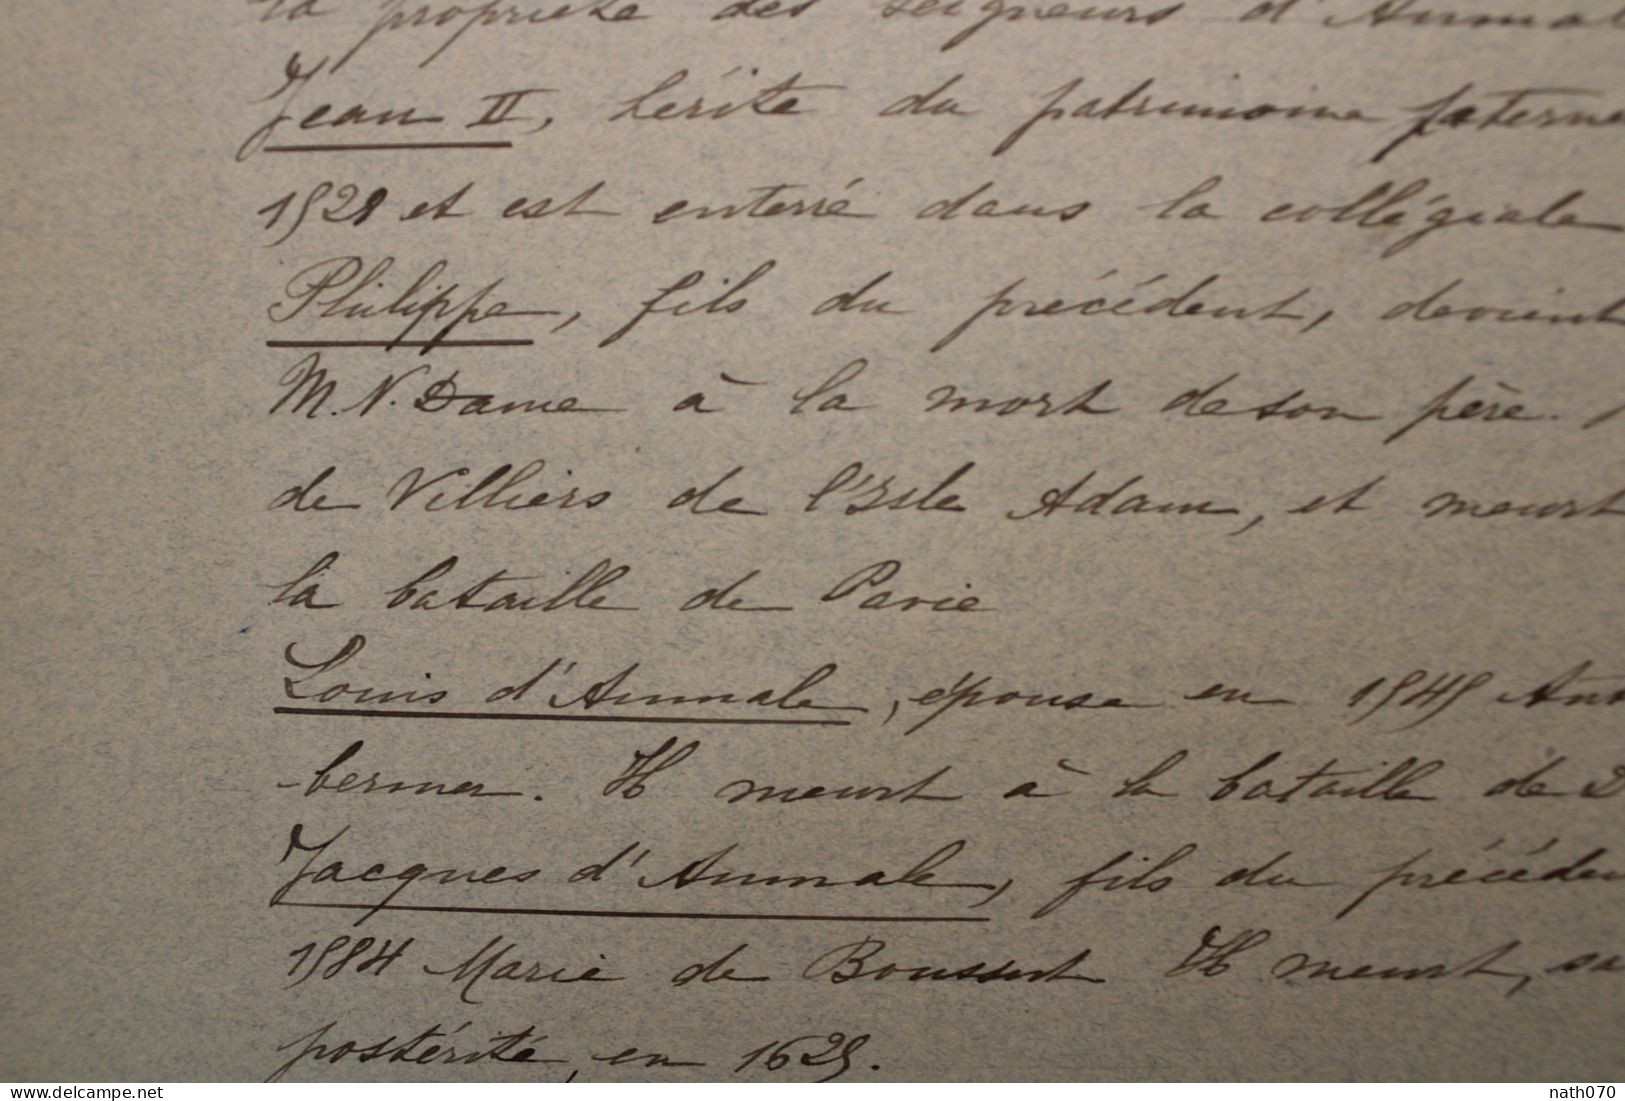 la propriété des seigneurs d'Aumal
Jean II, hérite du patrimoine paterne
1521 et est enterré dans la collégiale
Philippe, fils du précédent, devient
M. N. Dame à la mort de son père.
de Villiers de l'Isle Adam, et meurt
la bataille de Pavie
Louis d'Aumale, épouse en 1545 Ann
-bermer. Il meurt à la bataille de D
Jacques d'Aumale, fils du précéden
1584 Marie de Boussut Il meurt, sa
postérité, en 1625.
delcampe.net
nath070